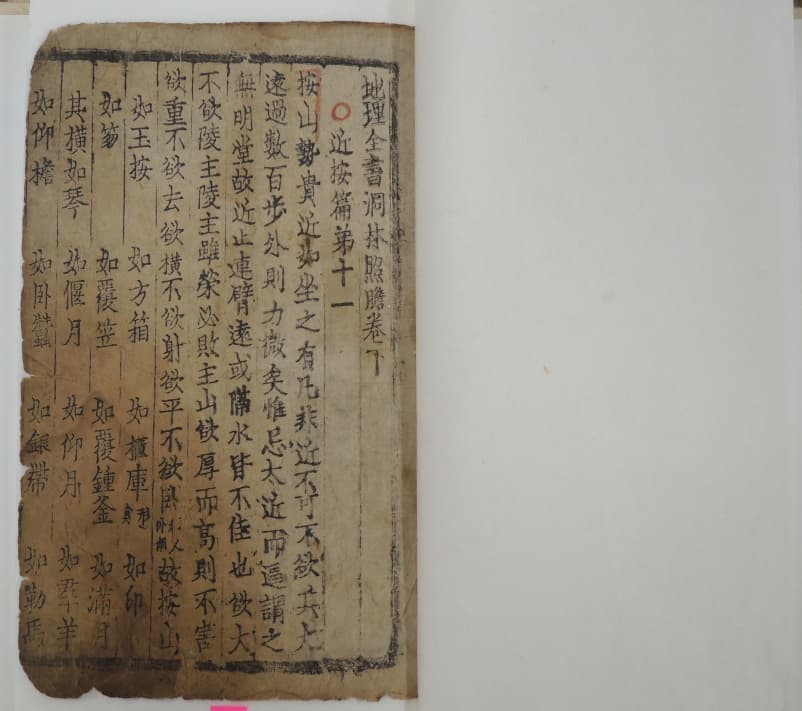 地理全書洞林照膽卷下
○近按篇第十一
按山勢貴近如坐之有几非近不可不欲其大
遠過數百步外則力微矣惟忌太近而逼謂之
無明堂故近止連臂遠或隔水皆不佳也欲大
不欲陵主陵主雖榮必敗主山欲厚而高則不害
欲重不欲去欲橫不欲射欲平不欲卧 人 故按山
如玉按 如方箱 如櫃庫 如印
如笏 如覆笠 如覆鍾釜 如滿月
其橫如琴 如偃月 如仰月 如羣羊
如仰檐 如卧蠶 如銀帶 如勒馬